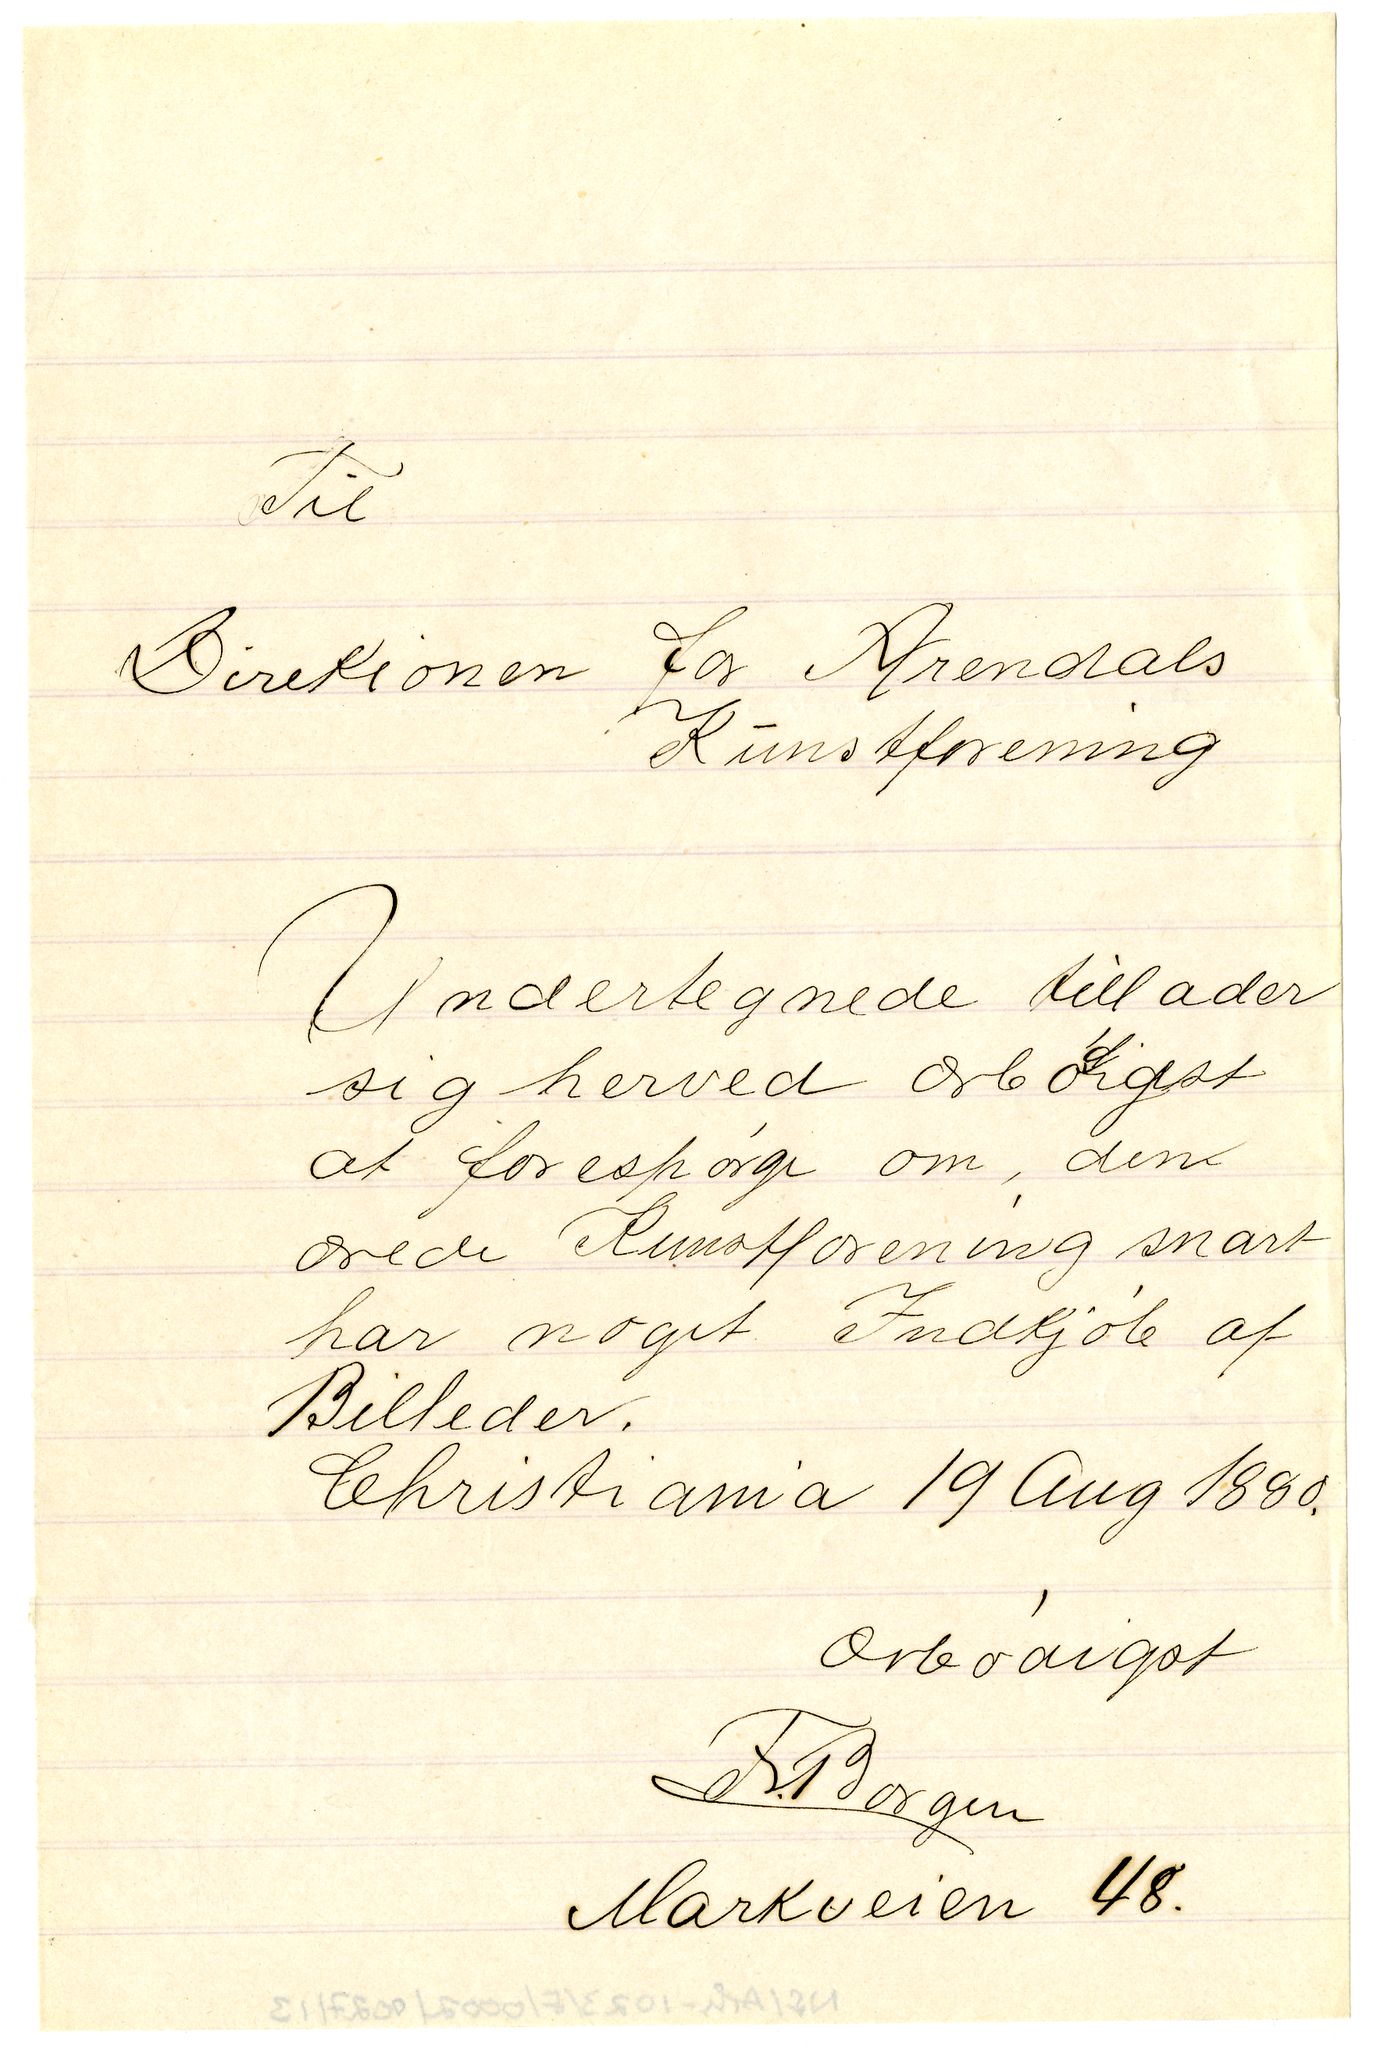 Til
Direktionen for Arendals
Kunstforening
Undertegnede tillader
sig herved ærbødigst
at forespørge om, den
ærede Kunstforening snart
har noget Indkjöb af
Billeder.
Christiania 19 Aug 1880.
Ærbødigst
Fr. Borgen
Markveien 48.